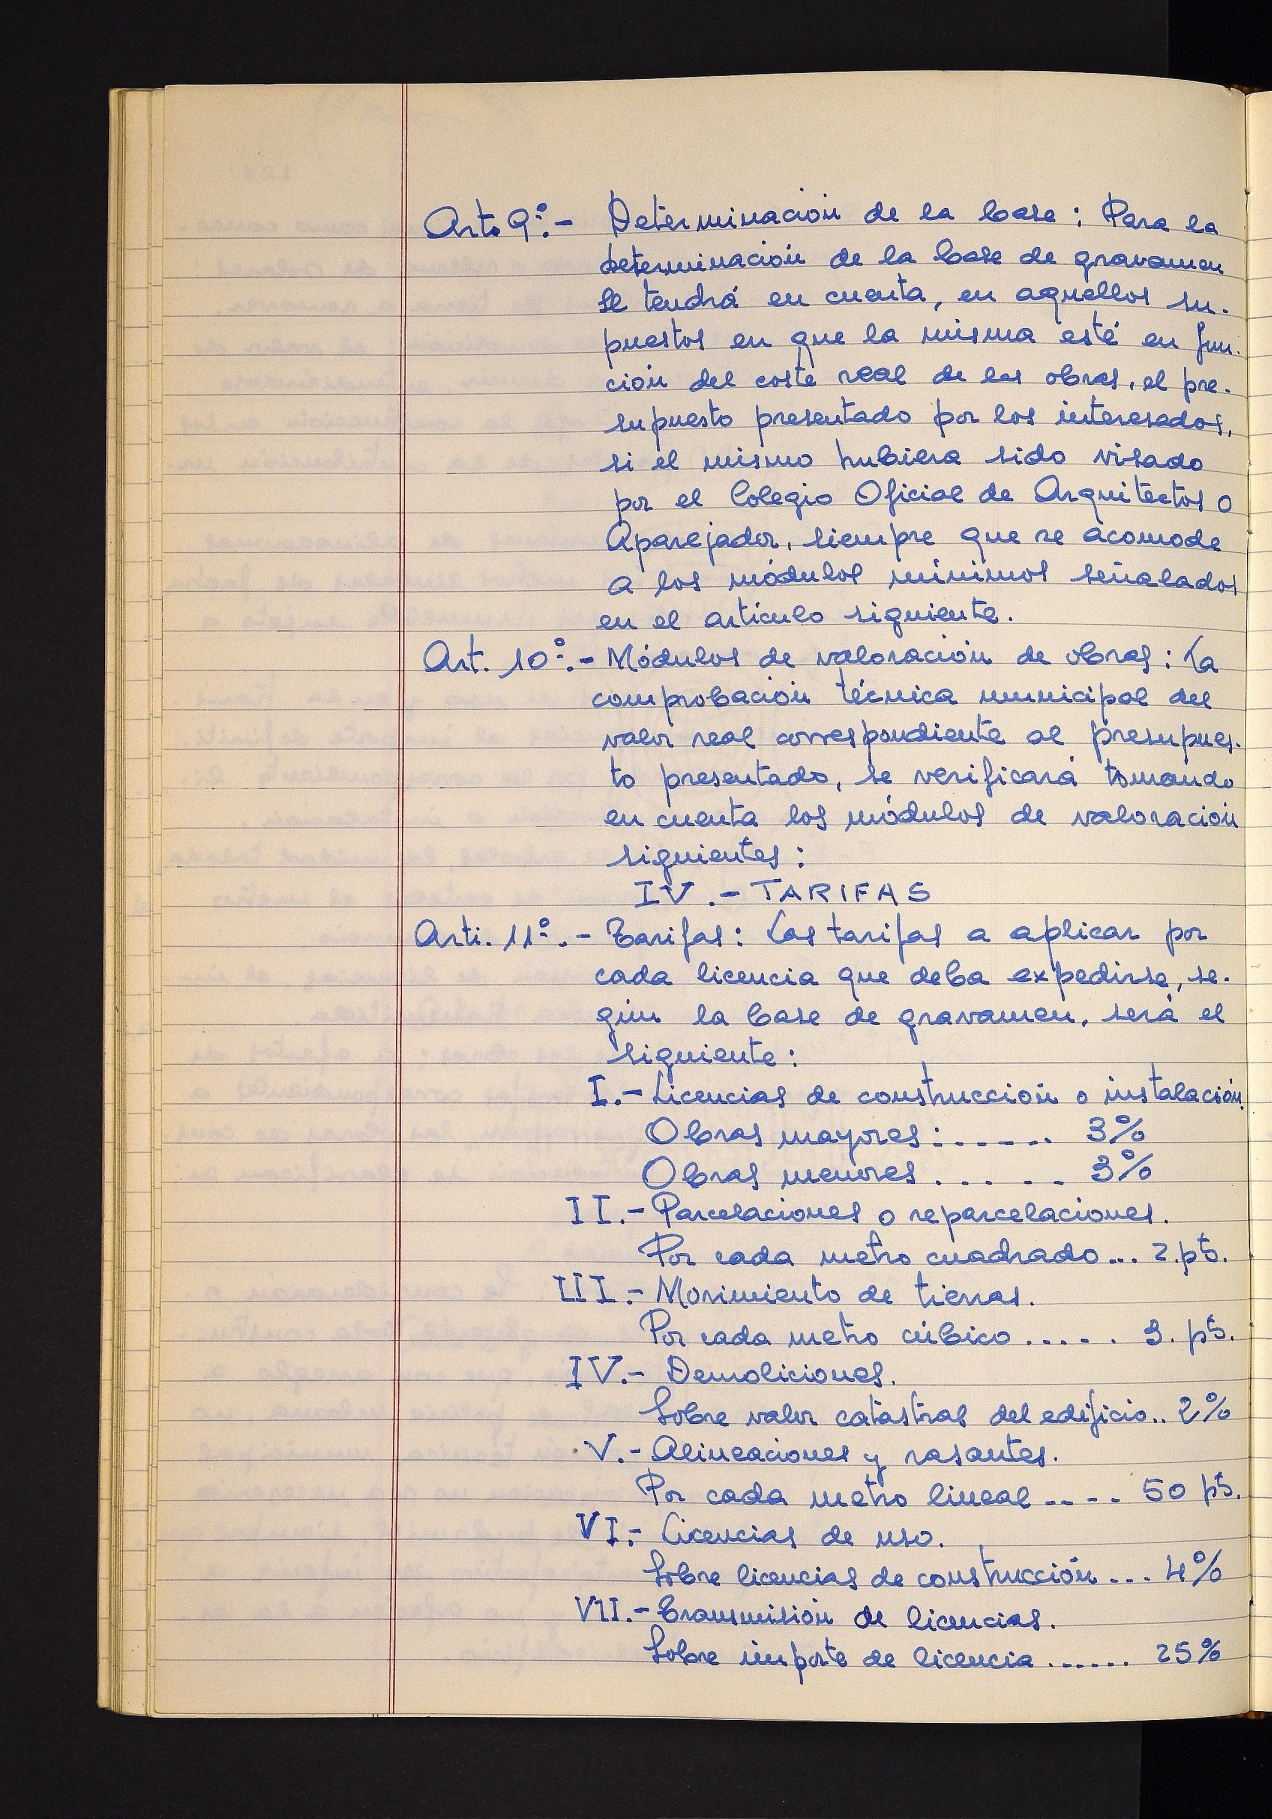 Art. 9º.- Determinación de la base: Para la
determinación de la base de gravamen
se tendrá en cuenta, en aquellos su-
puestos en que la misma esté en fun-
ción del coste real de las obras, el pre-
supuesto presentado por los interesados,
si el mismo hubiera sido visado
por el Colegio Oficial de Arquitectos o
Aparejador, siempre que se acomode
a los módulos mínimos señalados
en el artículo siguiente.
Art. 10º.- Módulos de valoración de obras: La
comprobación técnica municipal del
valor real correspondiente al presupues-
to presentado, se verificará tomando
en cuenta los módulos de valoración
siguientes:
IV.- TARIFAS
Arti. 11º.- Tarifas: Las tarifas a aplicar por
cada licencia que deba expedirse, se-
gún la base de gravamen, será el
siguiente:
I.- Licencias de construcción o instalación.
Obras mayores:...... 3%
Obras menores...... 3%
II.- Parcelaciones o reparcelaciones.
Por cada metro cuadrado... 2.pts.
III.- Movimiento de tierras.
Por cada metro cúbico..... 3. pts.
IV.- Demoliciones.
Sobre valor catastral del edificio.. 2%
V.- Alineaciones y rasantes.
Por cada metro lineal.... 50 pts.
VI.- Licencias de uso.
Sobre licencias de construcción... 4%
VII.- Transmisión de licencias.
Sobre importe de licencia...... 25%